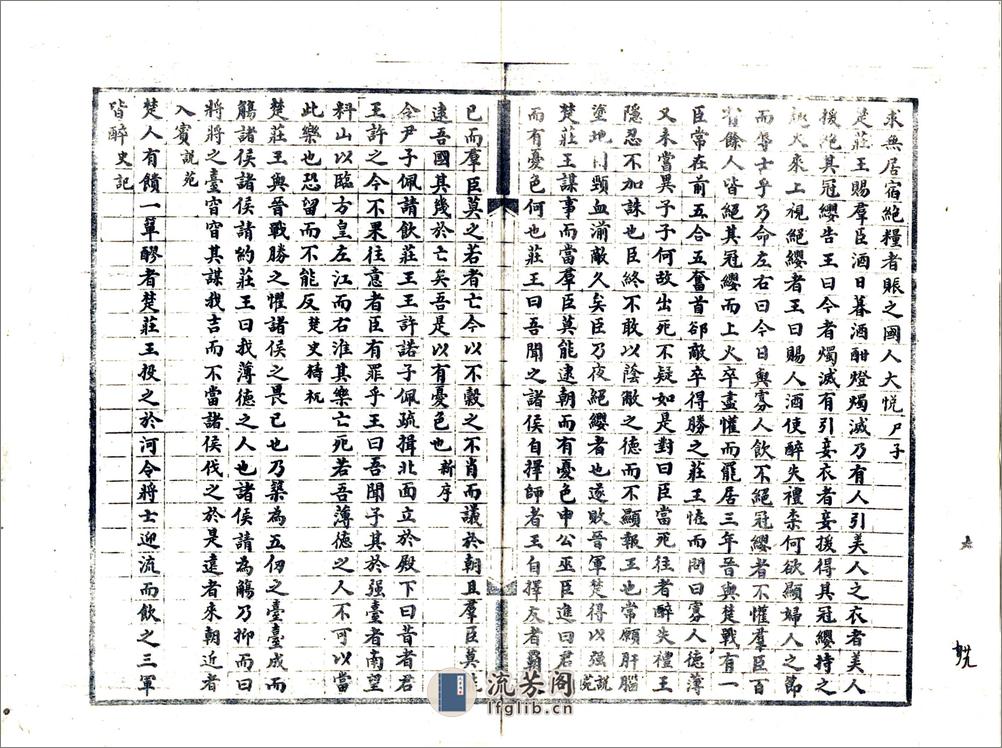 求無居宿絕糧者賑之國人大悅尸子
楚莊王賜羣臣酒日暮酒酣燈燭滅乃有人引美人之衣者美人
援絕其冠纓告王曰今者燭滅有引妾衣者妾援得其冠纓持之
趣火來上視絕纓者王曰賜人酒使醉失禮柰何欲顯婦人之節
而辱士乎乃命左右曰今日與寡人飲不絕冠纓者不懽羣臣百
有餘人皆絕其冠纓而上火卒盡懽而罷居三年晉與楚戰有一
臣常在前五合五奮首卻敵卒得勝之莊王怪而問曰寡人德薄
又未嘗異子子何故出死不疑如是對曰臣當死往者醉失禮王
隱忍不加誅也臣終不敢以陰蔽之德而不顯報王也常願肝腦
塗地用頸血湔敵久矣臣乃夜絕纓者也遂敗晉軍楚得以强說苑
楚莊王謀事而當羣臣莫能逮朝而有憂色申公巫臣進曰君朝
而有憂色何也莊王曰吾聞之諸侯自擇師者王自擇友者霸
已而羣臣莫之若者亡今以不穀之不肖而議於朝且羣臣莫
逮吾國其幾於亡矣吾是以有憂色也新序
令尹子佩請飲莊王王許諾子佩疏揖北面立於殿下曰昔者君
王許之今不果往意者臣有罪乎王曰吾聞子其於强臺者南望
料山以臨方皇左江而右淮其樂亡死若吾薄德之人不可以當
此樂也恐留而不能反楚史檮杌
楚莊王與晉戰勝之懼諸侯之畏己也乃築為五仞之臺臺成而
觴諸侯諸侯請約莊王曰我薄德之人也諸侯請為觴乃抑而曰
將將之臺窅窅其謀我言而不當諸侯伐之於是遠者來朝近者
入賓說苑
楚人有饋一簞醪者楚莊王投之於河令將士迎流而飲之三軍
皆醉史記
流芳阁
lfglib.cn